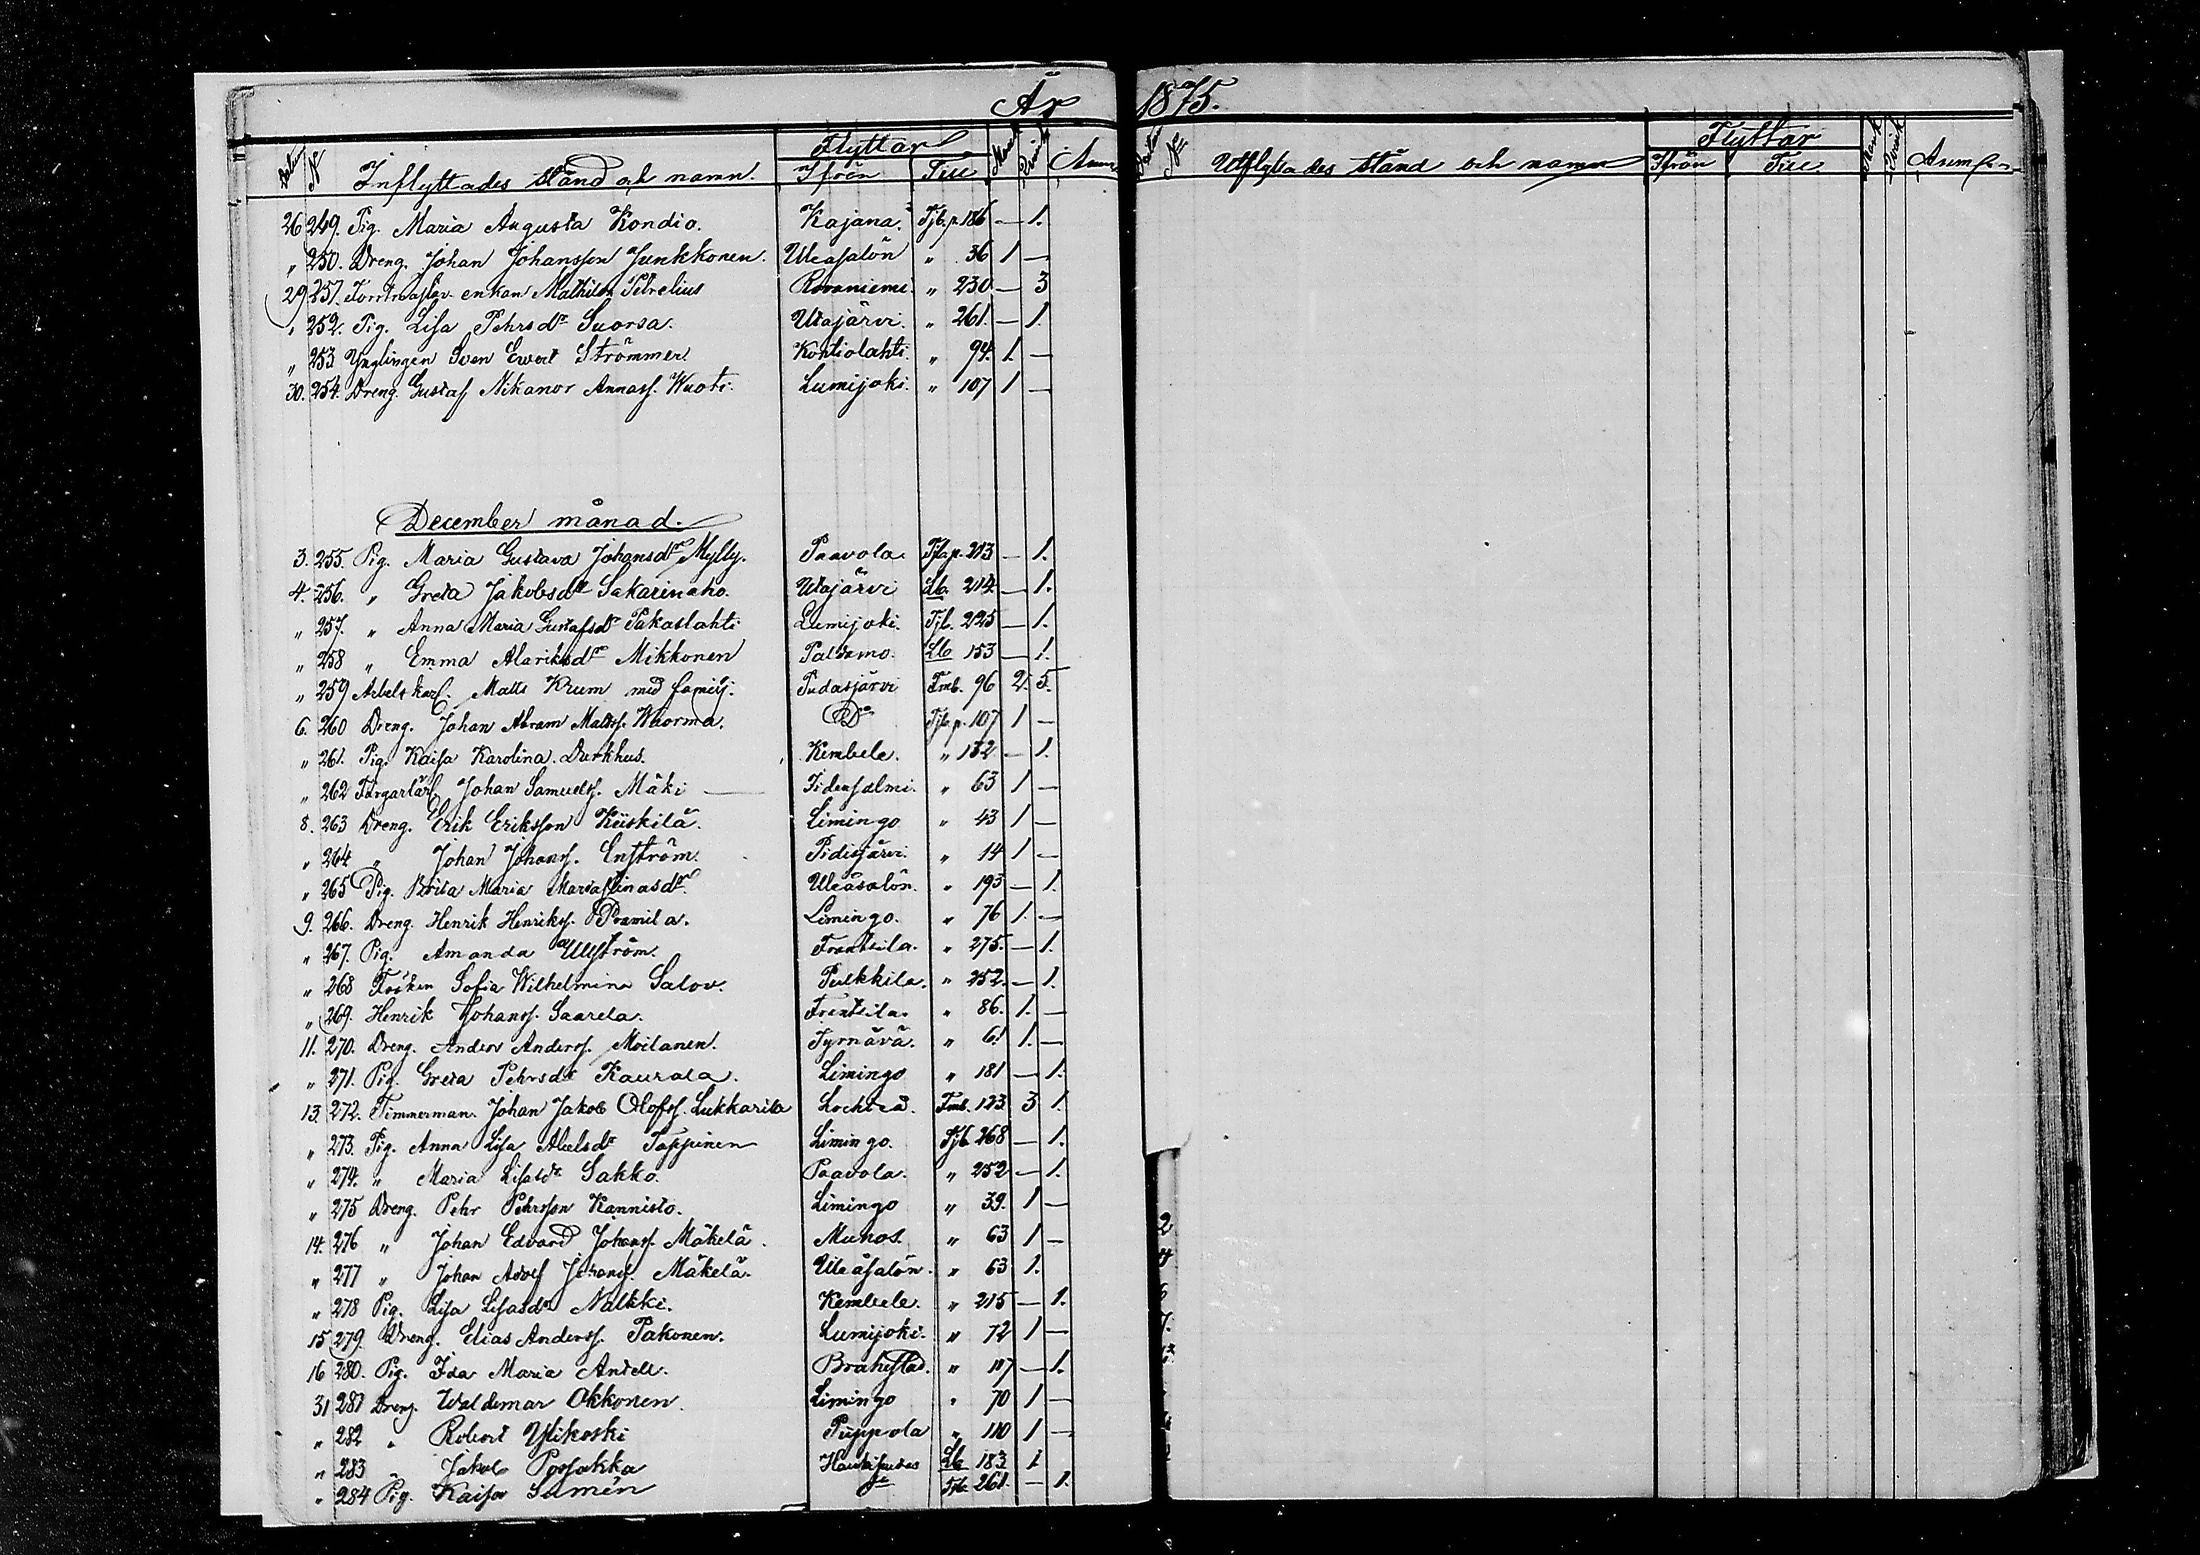 År 1875.
Datum No Inflyttades stånd och namn. Flyttar Ifrån Till Mank. Qvink. Anm
26 249. Pig. Maria Augusta Kondio. Kajana. Tjb. p. 186 — 1.
„ 250. Dreng. Johan Johansson Junkkonen. Uleåsalön „ 36 1 —
29 251. enkan Mathilda Petrelius Rovaniemi „ 230 — 3
„ 252. Pig. Lisa Pehrsdr Suorsa. Utajärvi. „ 261. — 1.
„ 253 Ynglingen Sven Evert Strömmer Kontiolahti. „ 94. 1. —
30. 254. Dreng. Gustaf Nikanor Annass. Wuoti. Lumijoki. „ 107 1 —
December månad.
3. 255. Pig. Maria Gustava Johansdr Mylly. Paavola. Tjb. p. 213 — 1.
4. 256. „ Greta Jakobsdr Sakarinaho. Utajärvi Lb. 214. — 1.
„ 257. „ Anna Maria Gustafsdr Pakaslahti Lumijoki. Tjb. 225 — 1.
„ 258 „ Emma Alariksdr Mikkonen Paldamo. Lb 153 — 1.
„ 259 Arbetskarl. Matts Krum med familj. Pudasjärvi Tmb. 96 2. 5.
6. 260 Dreng. Johan Abram Mattss. Wuorma. Do Tjb. p. 107 1 —
„ 261. Pig. Kaisa Karolina Kembele. „ 132 — 1.
„ 262 Johan Samuelss. Mäki — Idensalmi. „ 63 1 —
8. 263 Dreng. Erik Eriksson Kiiskilä. Limingo „ 43 1 —
„ 264 „ Johan Johanss. Enström. Pidisjärvi. „ 14 1 —
„ 265 Pig. Brita Maria Uleåsalön. „ 193 — 1.
9. 266. Dreng. Henrik Henrikss. Limingo. „ 76 1. —
„ 267. Pig. Amanda Ullström. Frantsila. „ 275. — 1.
„ 268 Fröken Sofia Wilhelmina Salov. Pulkkila. „ 252. — 1.
„ 269. Henrik Johanss. Saarela. Frantsila. „ 86. 1. —
11. 270. Dreng. Anders Anderss. Moilanen. Tyrnävä. „ 61 1. —
„ 271. Pig. Greta Pehrsdr Kaurala. Limingo „ 181 — 1.
13. 272. Timmerman. Johan Jakob Olofss. Lukkarila Lochteå. Tmb. 123 3 1.
„ 273. Pig. Anna Lisa Abelsdr Tappinen Limingo. Tjb 268 — 1.
„ 274. „ Maria Lisasdr Sakko. Paavola. „ 252 — 1.
„ 275 Dreng. Pehr Pehrsson Kannisto. Limingo „ 39. 1 —
14. 276 „ Johan Edvard Johanss. Mäkelä. Muhos. „ 63 1 —
„ 277 „ Johan Adolf Johanss. Mäkelä. Uleåsalön. „ 63 1.
„ 278 Pig. Lisa Lisasdr Nalkki. Kembele. „ 215 — 1.
15 279. Dreng. Elias Anderss. Pakonen. Lumijoki. „ 72 1 —
16 280. Pig. Ida Maria Antell. Brahestad. „ 117 — 1.
31 281 Dreng. Waldemar Okkonen. Limingo „ 70 1 —
„ 282 „ Robert Ylikoski Pippola „ 110 1 —
„ 283 „ Jakob Possakka Haukipudas Lb 183 1
„ 284 Pig. Kaisa Tjb. 261. — 1.
No Utflyttades stånd och namn Flyttar Ifrån Till Mank Qvink Anm